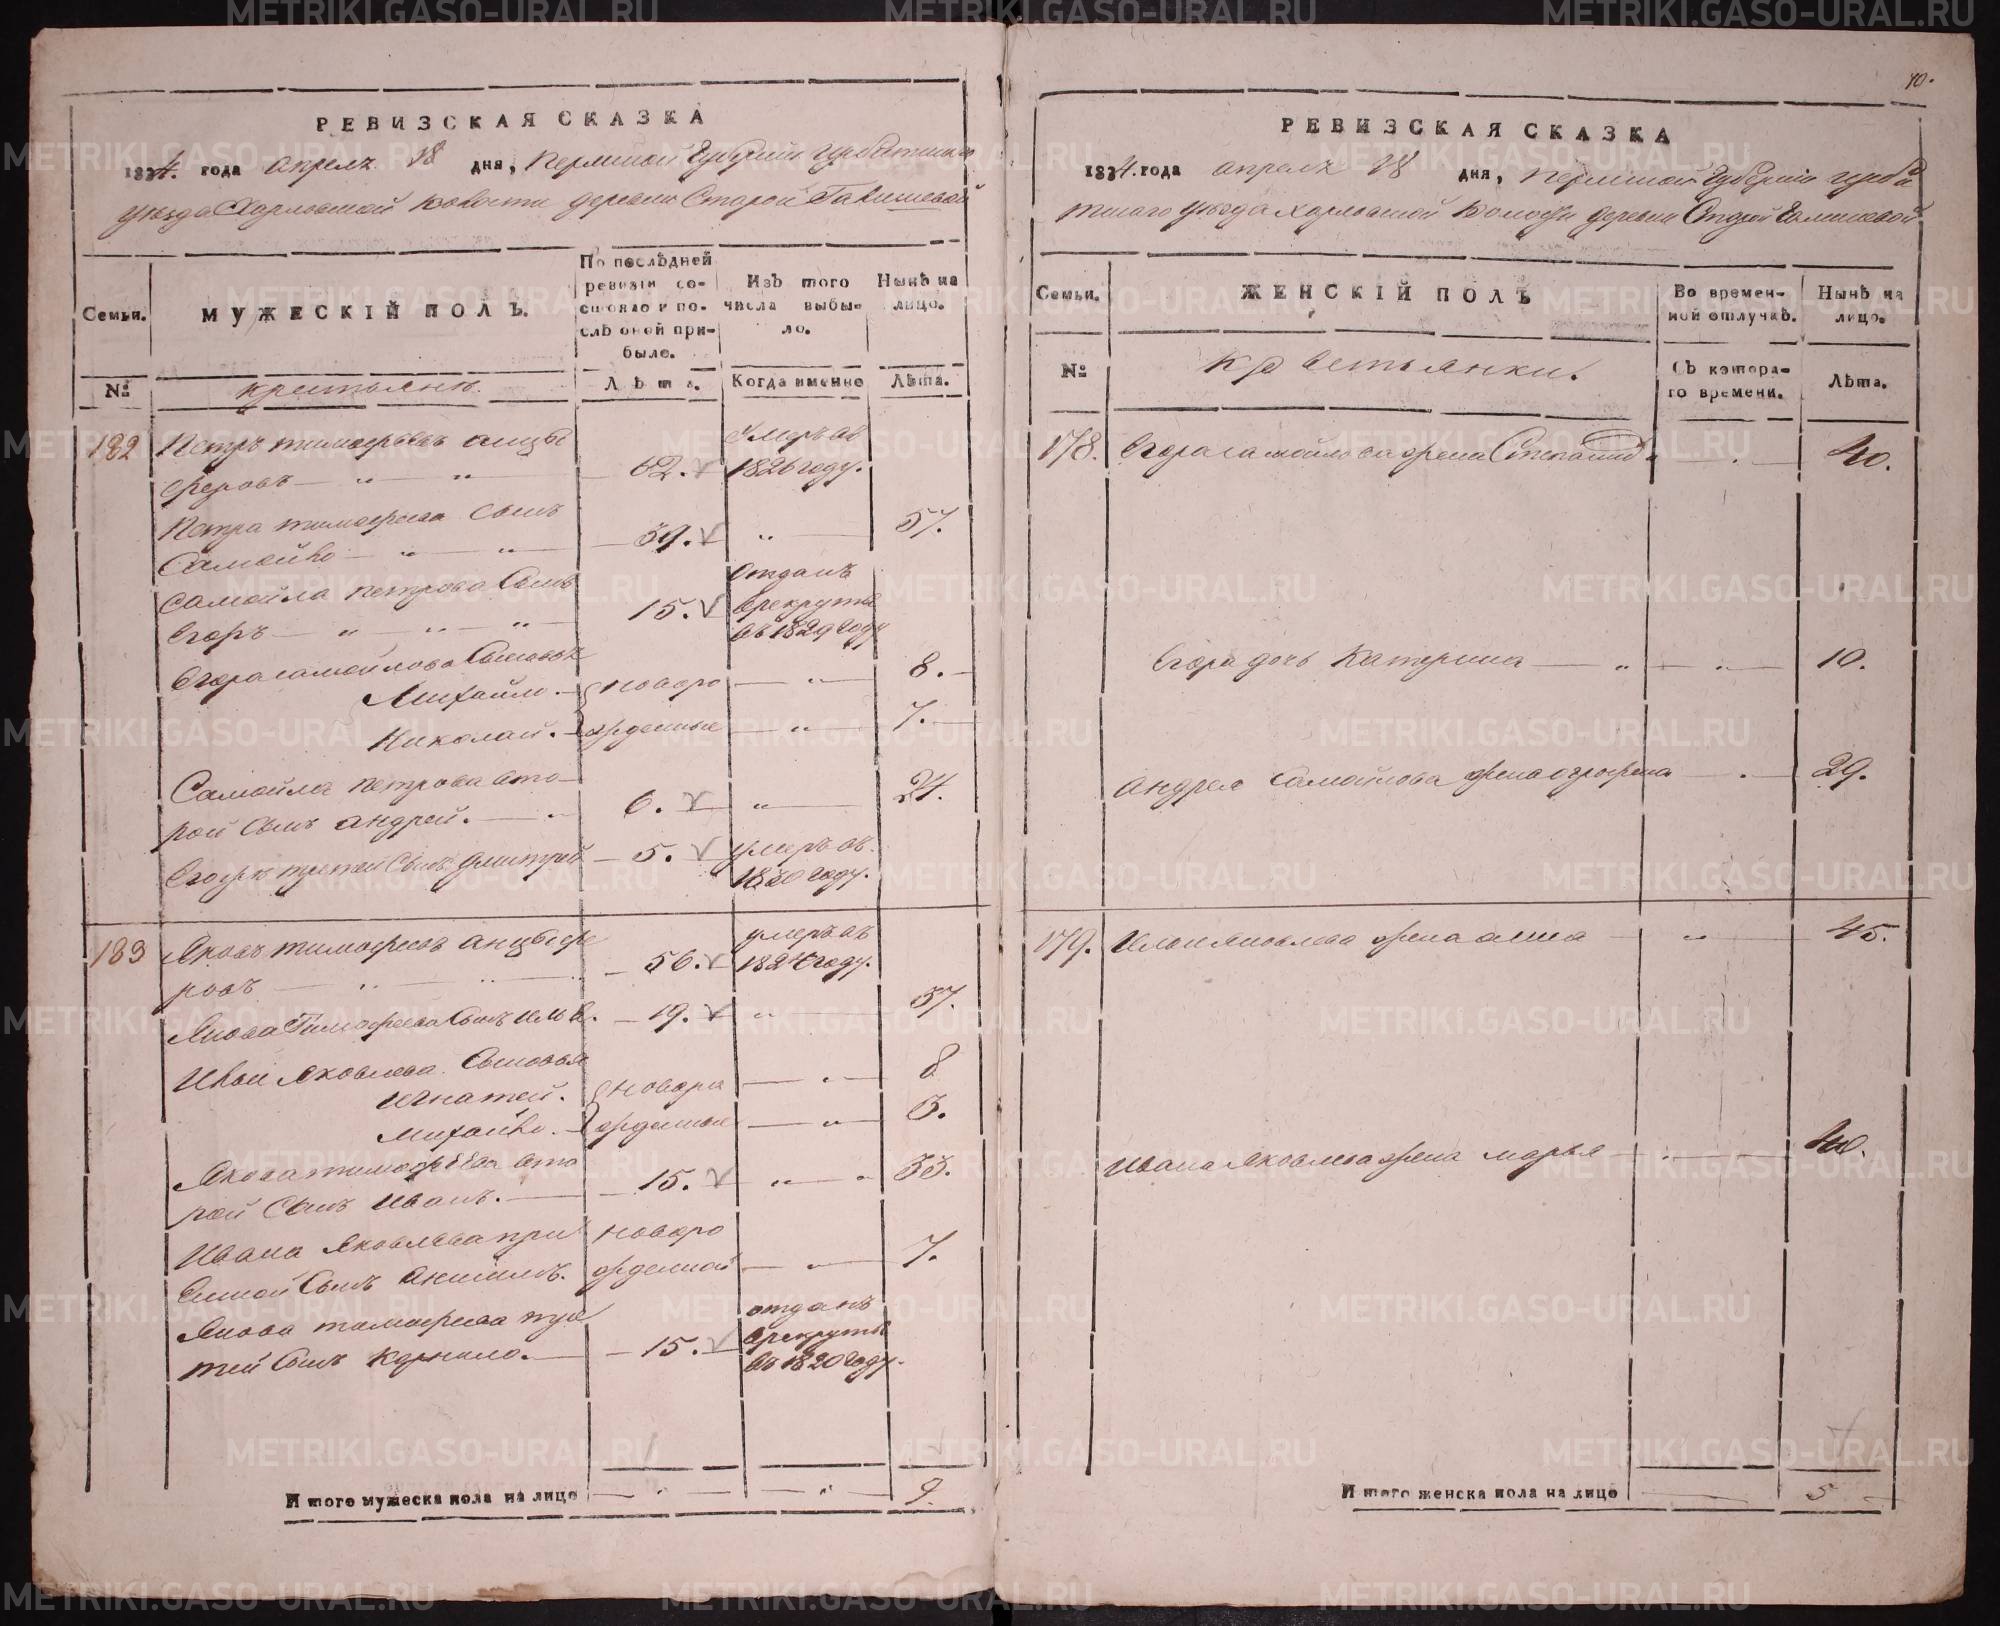 РЕВИЗСКАЯ СКАЗКА
1834. года апреля 18 дня, Пермской Губернии Ирбитскаго
уезда Харловской волости деревни Старой Гавишевой
Семьи.
МУЖЕСКІЙ ПОЛЪ.
По послѣдней ревизіи состояло и послѣ оной прибыло.
Изъ того числа выбыло.
Нынѣ на лицо.
№
крестьяне.
Лѣта.
Когда именно
Лѣта.
182
Петръ тимофеевъ анцы
феровъ — „ — „
62.
умеръ въ
1826 году.
Петра тимофеева Сынъ
Самойло — „ — „ —
39.
„
57.
Самойла петрова Сынъ
Егоръ — „ — „ — „ —
15.
отданъ
врекруты
въ 1829 году
Егора самойлова Сыновья
Михайло.
новоро
— „ —
8.
Николай.
жденные
— „ —
7.
Самойла петрова вто
рой Сынъ андрей. — „
6.
„
24.
Егоже третей Сынъ дмитрей
5.
умеръ въ
1830 году.
183
Яковъ тимофеевъ анцыфе
ровъ — „ — „ — „
56.
умеръ въ
1824 году.
Якова Тимофеева Сынъ илья.
19.
„
37.
Ильи Яковлева Сыновья
Игнатей.
новоро
— „ —
8
Михайло.
жденные
— „ —
3.
Якова тимофеева вто
рой Сынъ иванъ.
15.
— „ — „
33.
Ивана Яковлева при
емной Сынъ Акимъ.
новоро
жденной
— „ —
7.
Якова тимофеева тре
тей Сынъ корнило.
15.
отданъ
врекруты
въ 1820 году.
Итого мужеска пола на лицо
— „ —
— „ —
9.
40.
РЕВИЗСКАЯ СКАЗКА
1834. года апреля 18 дня, Пермской Губерніи ирби
тскаго уезда Харловской волости деревни Старой Гавишевой
Семьи.
ЖЕНСКІЙ ПОЛЪ
Во временной отлучкѣ.
Нынѣ на лицо.
№
крестьянки.
Съ котораго времени.
Лѣта.
178.
Егора самойлова жена Степанида
— „ —
40.
Егора дочь Катерина — „
— „ —
10.
андрея Самойлова жена
— „ —
29.
179.
Ильи Яковлева жена анна
— „ —
45.
Ивана Яковлева жена марья
— „ —
40.
Итого женска пола на лицо
5
METRIKI.GASO-URAL.RU